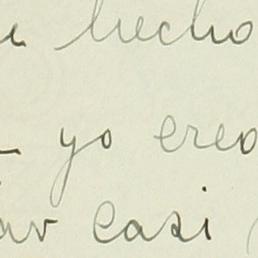 hecho
yo creo
casi